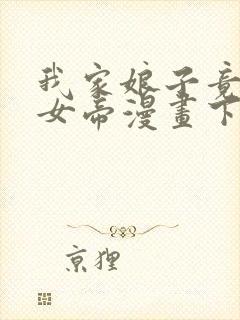 我家娘子竟
女帝漫畫下
京狸